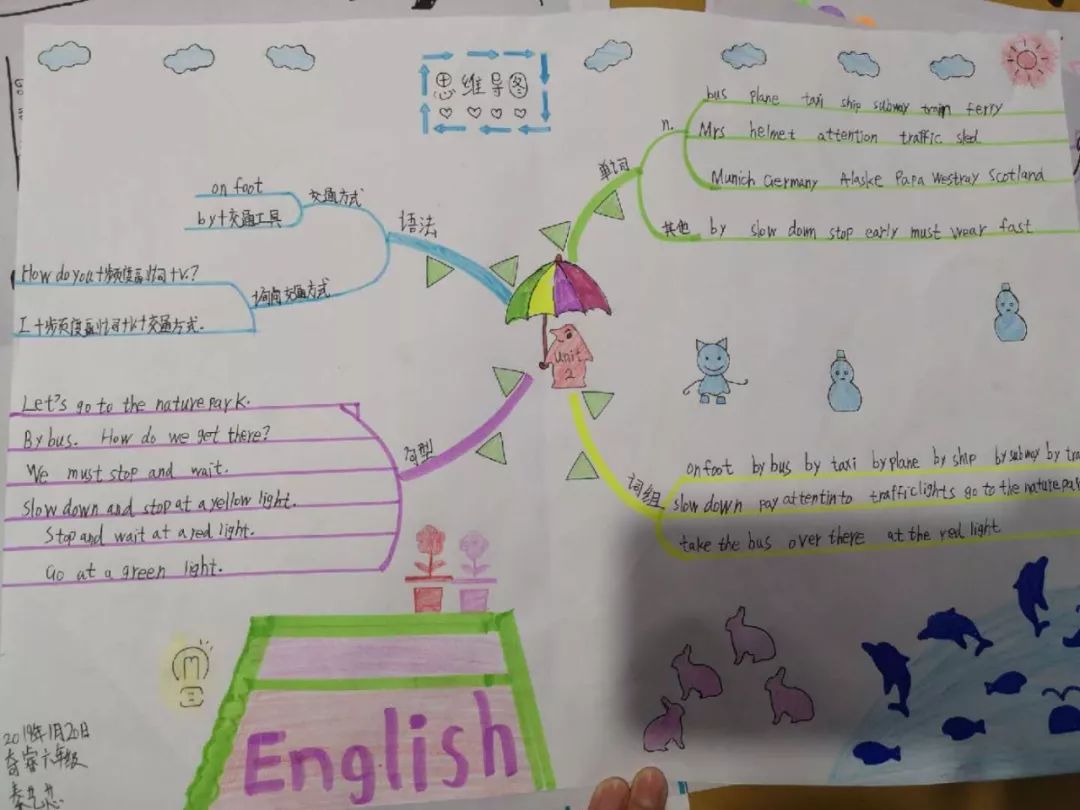 思维导图
语法
交通方式
on foot
by+交通工具
询问交通方式
How do you+频度副词+v.?
I+频度副词+v.+交通方式.
单词
n.
bus plane taxi ship subway train ferry
Mrs helmet attention traffic sled
Munich Germany Alaske Papa Westray Scotland
其他
by slow down stop early must wear fast
Unit
2
句型
Let's go to the nature park.
By bus. How do we get there?
We must stop and wait.
Slow down and stop at a yellow light.
Stop and wait at a red light.
Go at a green light.
词组
on foot by bus by taxi by plane by ship by subway by tra
slow down pay attentinto trafficlights go to the nature par
take the bus over there at the red light
English
六年级